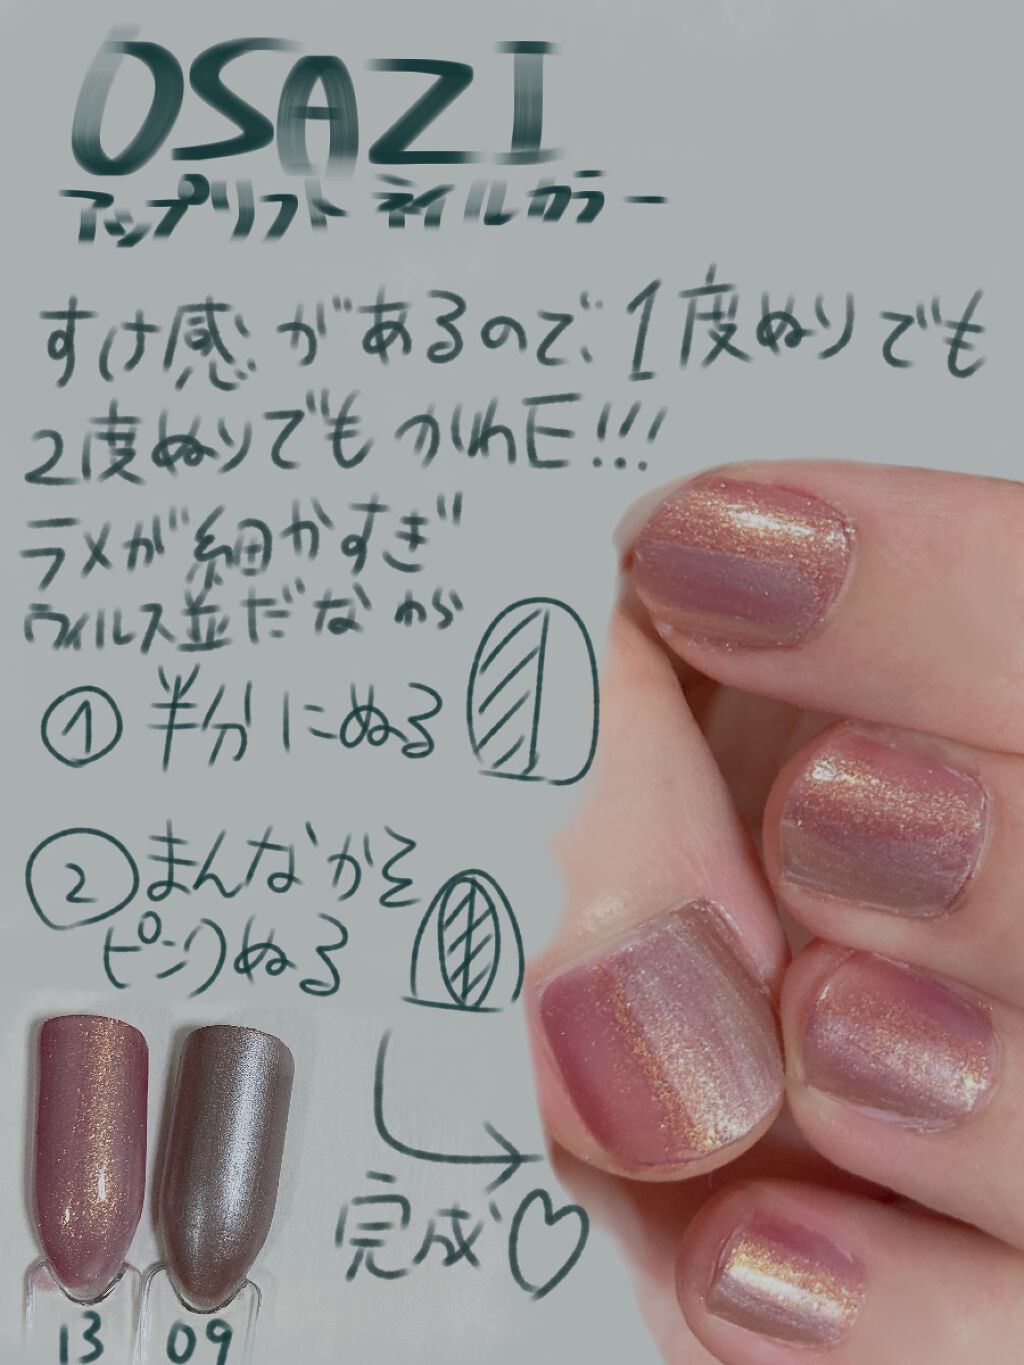 OSAZI
アップリフト ネイルカラー
すけ感があるので、1度ぬりでも
2度ぬりでもかわE!!!
ラメが細かすぎ
ウィルス並だなわら
① 半分にぬる
② まんなかを
ピンクぬる
完成♡
13 09